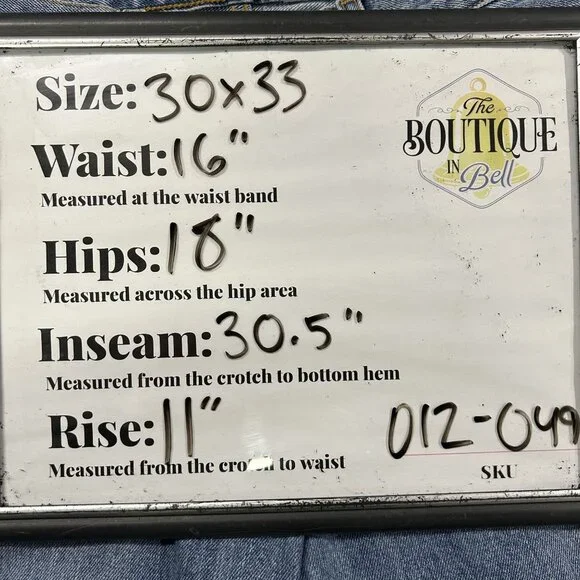 Size: 30x33
The
BOUTIQUE
IN
Bell
Waist: 16"
Measured at the waist band
Hips: 18"
Measured across the hip area
Inseam: 30.5"
Measured from the crotch to bottom hem
Rise: 11"
Measured from the crotch to waist
012-049
SKU